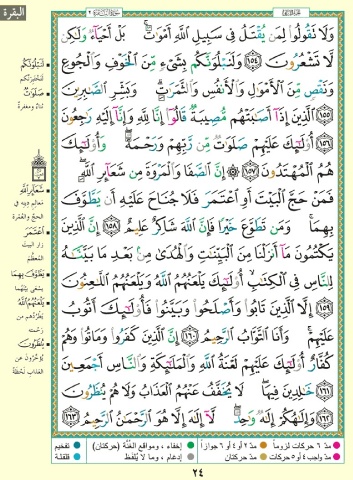 البقرة
الجزء الثاني
سورة البقرة ٢
وَلَا تَقُولُوا۟ لِمَن يُقْتَلُ فِى سَبِيلِ ٱللَّهِ أَمْوَٰتٌۢ ۚ بَلْ أَحْيَآءٌ وَلَـٰكِن
لَّا تَشْعُرُونَ ١٥٤ وَلَنَبْلُوَنَّكُم بِشَىْءٍ مِّنَ ٱلْخَوْفِ وَٱلْجُوعِ
وَنَقْصٍ مِّنَ ٱلْأَمْوَٰلِ وَٱلْأَنفُسِ وَٱلثَّمَرَٰتِ ۗ وَبَشِّرِ ٱلصَّـٰبِرِينَ
١٥٥ ٱلَّذِينَ إِذَآ أَصَـٰبَتْهُم مُّصِيبَةٌ قَالُوٓا۟ إِنَّا لِلَّهِ وَإِنَّآ إِلَيْهِ رَٰجِعُونَ
١٥٦ أُو۟لَـٰٓئِكَ عَلَيْهِمْ صَلَوَٰتٌ مِّن رَّبِّهِمْ وَرَحْمَةٌ ۖ وَأُو۟لَـٰٓئِكَ
هُمُ ٱلْمُهْتَدُونَ ١٥٧ إِنَّ ٱلصَّفَا وَٱلْمَرْوَةَ مِن شَعَآئِرِ ٱللَّهِ ۖ
فَمَنْ حَجَّ ٱلْبَيْتَ أَوِ ٱعْتَمَرَ فَلَا جُنَاحَ عَلَيْهِ أَن يَطَّوَّفَ
بِهِمَا ۚ وَمَن تَطَوَّعَ خَيْرًا فَإِنَّ ٱللَّهَ شَاكِرٌ عَلِيمٌ ١٥٨ إِنَّ ٱلَّذِينَ
يَكْتُمُونَ مَآ أَنزَلْنَا مِنَ ٱلْبَيِّنَـٰتِ وَٱلْهُدَىٰ مِنۢ بَعْدِ مَا بَيَّنَّـٰهُ
لِلنَّاسِ فِى ٱلْكِتَـٰبِ ۙ أُو۟لَـٰٓئِكَ يَلْعَنُهُمُ ٱللَّهُ وَيَلْعَنُهُمُ ٱللَّـٰعِنُونَ
١٥٩ إِلَّا ٱلَّذِينَ تَابُوا۟ وَأَصْلَحُوا۟ وَبَيَّنُوا۟ فَأُو۟لَـٰٓئِكَ أَتُوبُ
عَلَيْهِمْ ۚ وَأَنَا ٱلتَّوَّابُ ٱلرَّحِيمُ ١٦٠ إِنَّ ٱلَّذِينَ كَفَرُوا۟ وَمَاتُوا۟ وَهُمْ
كُفَّارٌ أُو۟لَـٰٓئِكَ عَلَيْهِمْ لَعْنَةُ ٱللَّهِ وَٱلْمَلَـٰٓئِكَةِ وَٱلنَّاسِ أَجْمَعِينَ
١٦١ خَـٰلِدِينَ فِيهَا ۖ لَا يُخَفَّفُ عَنْهُمُ ٱلْعَذَابُ وَلَا هُمْ يُنظَرُونَ
١٦٢ وَإِلَـٰهُكُمْ إِلَـٰهٌ وَٰحِدٌ ۖ لَّآ إِلَـٰهَ إِلَّا هُوَ ٱلرَّحْمَـٰنُ ٱلرَّحِيمُ ١٦٣
لَنَبْلُوَنَّكُم
لنختبرنّكم
صَلَوَاتٌ
ثناءٌ ومغفرةٌ
شَعَائِرِ اللهِ
معالم دينه في
الحجّ والعمرة
اعْتَمَرَ
زار البيت
المُعظّم
يَطَّوَّفَ بِهِمَا
يسعى بينهما
يَلْعَنُهُمُ اللهُ
يطردهم من
رحمته
يُنظَرُونَ
يُؤخّرون عن
العذاب لحظةً
مدّ ٦ حركات لزوماً
مدّ ٢ أو ٤ أو ٦ جوازاً
إخفاء، ومواقع الغُنَّة (حركتان)
تفخيم
مدّ واجب ٤ أو ٥ حركات
مدّ حركتان
إدغام، وما لا يُلفظ
قلقلة
٢٤